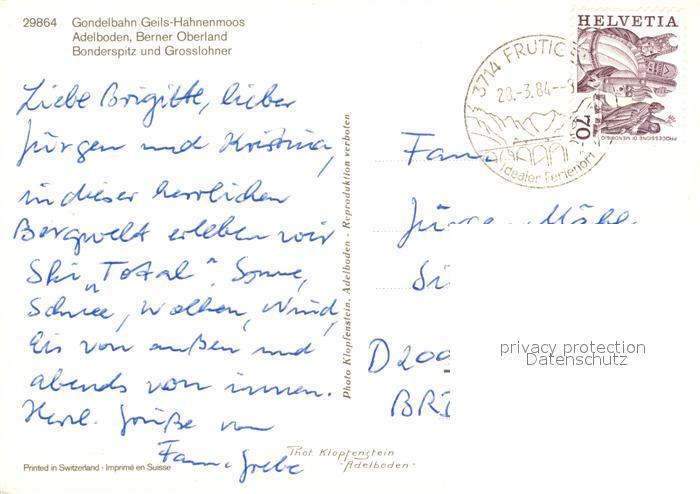 29864 Gondelbahn Geils-Hahnenmoos
Adelboden, Berner Oberland
Bonderspitz und Grosslohner
HELVETIA
70
PROCESSIONE DI MENDRISIO
3714 FRUTIGE
28.-3.84--
Idealer Ferienort
Liebe Brigitte, lieber
Jürgen und Kristina,
in dieser herrlichen
Bergwelt erleben wir
Ski „Total". Sonne,
Schnee, Wolken, Wind,
Eis von außen und
abends von innen.
Herzl. Grüße von
Fam. Grebe
Photo Klopfenstein, Adelboden · Reproduktion verboten
Fam
D 200
BRD
privacy protection
Datenschutz
Phot Klopfenstein
-Adelboden-
Printed in Switzerland · Imprimé en Suisse